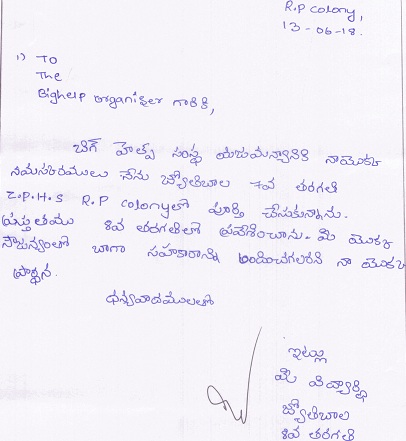 R.P colony,
13-06-18.
1) To
The
Bighelp organiser గారికి,
బిగ్ హెల్ప్ సంస్థ యజమాన్యానికి నాయొక్క
నమస్కారములు నేను జ్యోతిబాల 7వ తరగతి
Z.P.H.S R.P Colonyలో పూర్తి చేసుకున్నాను.
ప్రస్తుతము 8వ తరగతిలో ప్రవేశించాను. మీ యొక్క
సౌజన్యంతో బాగా సహకారాన్ని అందించగలరని నా యొక్క
ప్రార్థన.
ధన్యవాదములతో
ఇట్లు
మీ విద్యార్థి
జ్యోతిబాల
8వ తరగతి